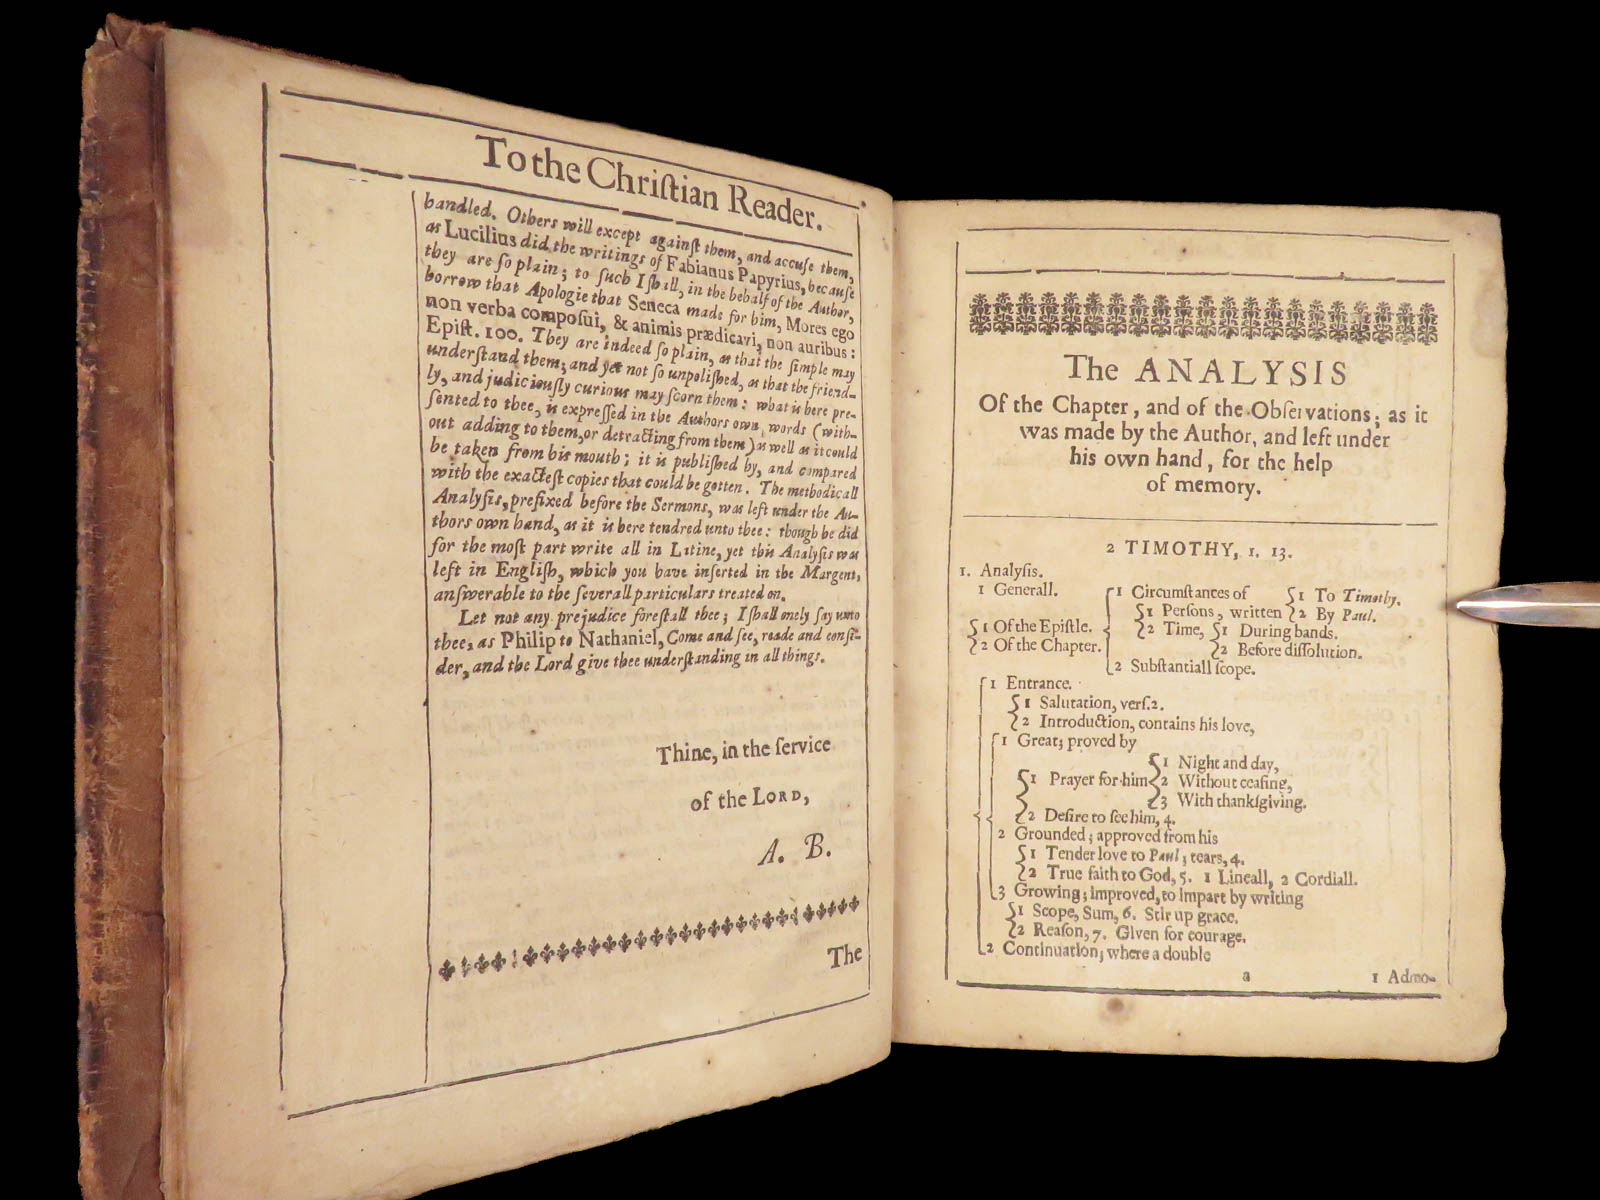 To the Chriſtian Reader.
handled. Others will except againſt them, and accuſe them,
as Lucilius did the writings of Fabianus Papyrius, becauſe
they are ſo plain; to ſuch I ſhall, in the behalf of the Author,
borrow that Apologie that Seneca made for him, Mores ego
non verba compoſui, & animis prædicavi, non auribus:
Epiſt. 100. They are indeed ſo plain, as that the ſimple may
underſtand them; and yet not ſo unpoliſhed, as that the friend-
ly, and judiciouſly curious may ſcorn them: what is here pre-
ſented to thee, is expreſſed in the Authors own words (with-
out adding to them, or detracting from them) as well as it could
be taken from his mouth; it is publiſhed by, and compared
with the exacteſt copies that could be gotten. The methodicall
Analyſis, prefixed before the Sermons, was left under the Au-
thors own hand, as it is here tendred unto thee: though he did
for the moſt part write all in Latine, yet this Analyſis was
left in Engliſh, which you have inſerted in the Margent,
anſwerable to the ſeverall particulars treated on.
Let not any prejudice foreſtall thee; I ſhall onely ſay unto
thee, as Philip to Nathaniel, Come and ſee, reade and conſi-
der, and the Lord give thee underſtanding in all things.
Thine, in the ſervice
of the LORD,
A. B.
The
The ANALYSIS
Of the Chapter, and of the Obſervations; as it
was made by the Author, and left under
his own hand, for the help
of memory.
2 TIMOTHY, 1. 13.
1. Analyſis.
1 Generall.
1 Of the Epiſtle.
2 Of the Chapter.
1 Circumſtances of
1 Perſons, written
1 To Timothy.
2 By Paul.
2 Time,
1 During bands.
2 Before diſſolution.
2 Subſtantiall ſcope.
1 Entrance.
1 Salutation, verſ.2.
2 Introduction, contains his love,
1 Great; proved by
1 Prayer for him
1 Night and day,
2 Without ceaſing,
3 With thankſgiving.
2 Deſire to ſee him, 4.
2 Grounded; approved from his
1 Tender love to Paul; tears, 4.
2 True faith to God, 5. 1 Lineall, 2 Cordiall.
3 Growing; improved, to impart by writing
1 Scope, Sum, 6. Stir up grace.
2 Reaſon, 7. Given for courage.
2 Continuation; where a double
a
1 Admo-